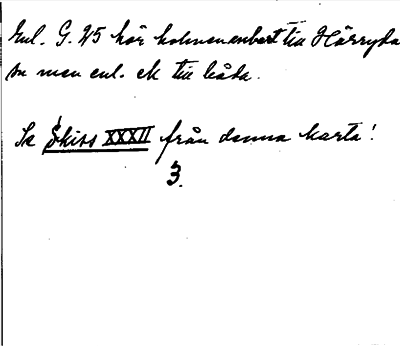 Enl. G. 25 hör holmen enbart till Härryda
sn men enl. ek till båda.
Se Skiss XXXII från denna karta!
3.